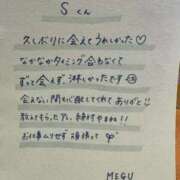 Sくん
久しぶりに会えてうれしかった♡
なかなかタイミング合わなくて
ずっと会えず、淋しかったです
会えない間も心配してくれてありがと
教えてもらったアレ、絶対やるネ!!
お仕事ムリせず頑張って
MEGU